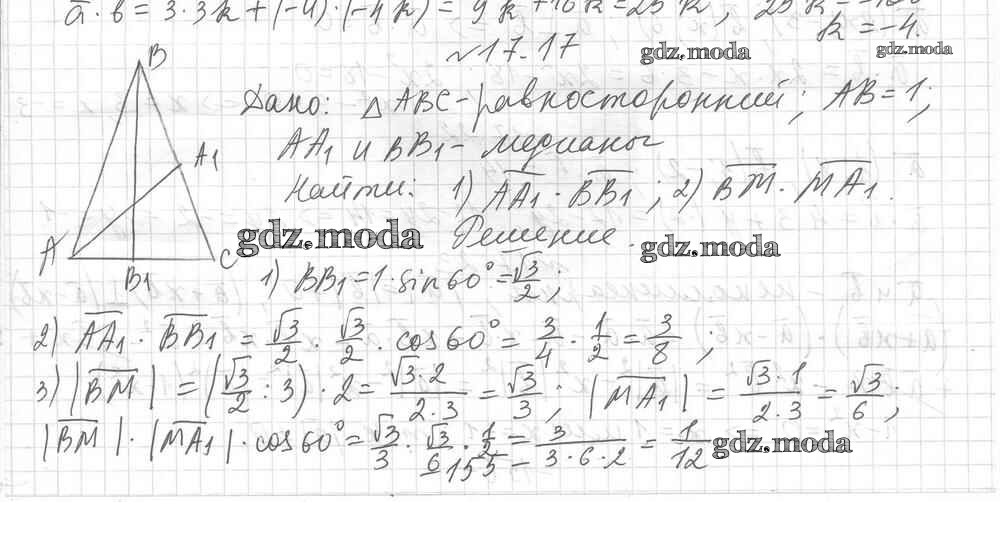 a̅ · b̅ = 3·3k + (-4)·(-4k) = 9k + 16k = 25k,
k = -4.
№17.17
gdz.moda
gdz.moda
B
Дано: △ABC - равносторонний; AB = 1;
A1
AA₁ и BB₁ - медианы
Найти: 1) AA₁ · BB₁ ; 2) BM · MA₁.
A
gdz.moda
Решение.
gdz.moda
C
B1
1) BB₁ = 1·sin60° = √3/2 ;
2) AA₁ · BB₁ = √3/2 · √3/2 · cos60° = 3/4 · 1/2 = 3/8 ;
3) |BM| = (√3/2 : 3) · 2 = √3·2/2·3 = √3/3 ; |MA₁| = √3·1/2·3 = √3/6 ;
|BM| · |MA₁| · cos60° = √3/3 · √3/6 · 1/2 = 3/3·6·2 = 1/12
gdz.moda
- 155 -